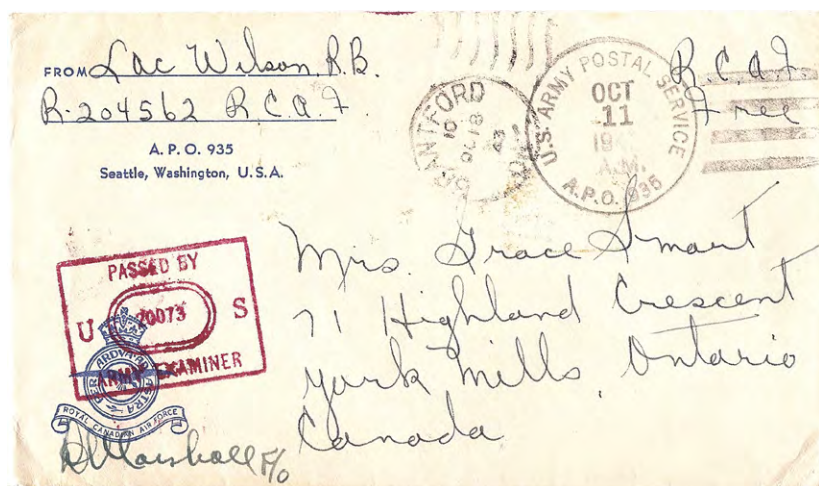 FROM Lac Wilson, R.B.
R-204562 R.C.A.F.
A. P. O. 935
Seattle, Washington, U. S. A.
BRANTFORD
10
OC 18
43
U.S. ARMY POSTAL SERVICE
OCT
11
A.M.
A.P.O. 935
R.C.A.F.
Free
PASSED BY
U 20073 S
ARMY EXAMINER
PER ARDVA AD ASTRA
ROYAL CANADIAN AIR FORCE
D Marshall F/O
Mrs. Grace Smart
71 Highland Crescent
York Mills, Ontario
Canada